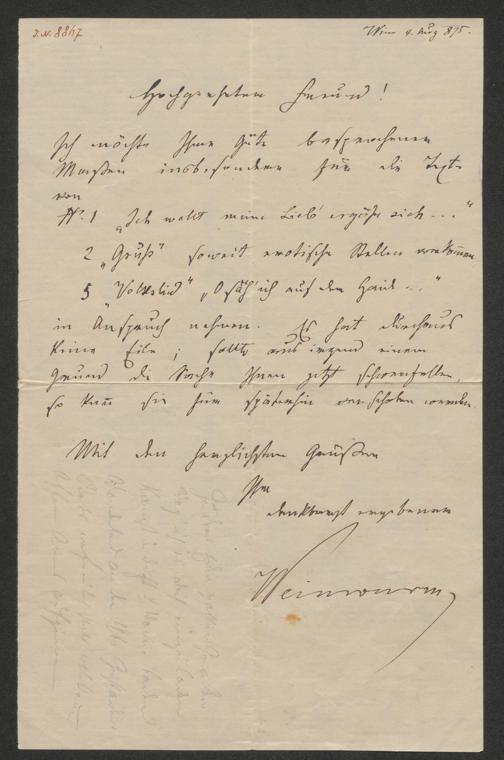 I.N. 8847
Wien 4. Aug 875.
Hochgeehrter Freund!
Ich möchte Ihre Güte besprochener
Maßen insbesondere für die Texte
von
No. 1 „Ich wollt meine Lieb' ergösse sich ..."
2 „Gruß" soweit erotische Stellen vorkommen
5 Volkslied" „O säh' ich auf der Haide .."
in Anspruch nehmen. Es hat durchaus
keine Eile; sollte aus irgend einem
Grund die Sache Ihnen jetzt schwerfallen,
so kann sie für späterhin verschoben werden
Mit den herzlichsten Grüßen
Ihr
dankbarst ergebener
Weinwurm